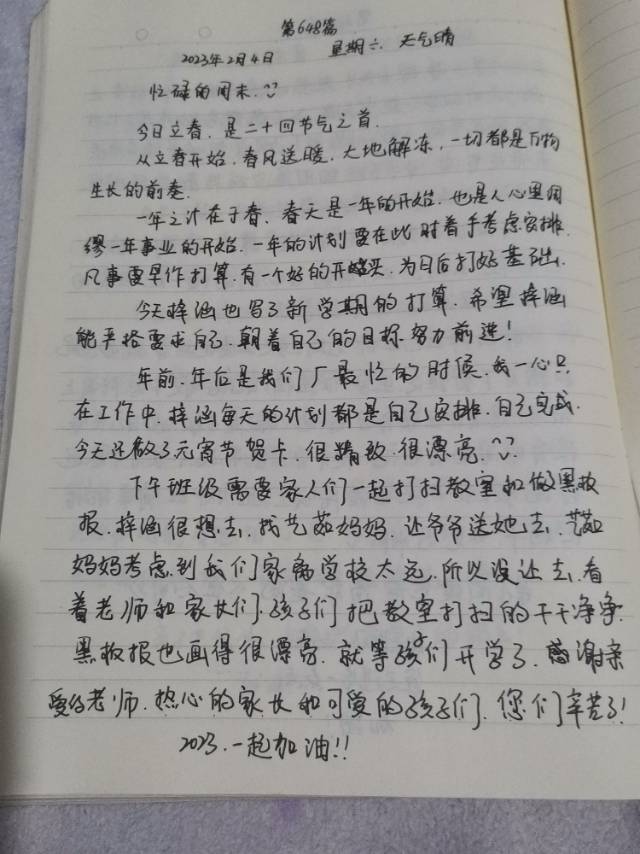 第648篇
2023年2月4日 星期六. 天气晴
忙碌的周末.
今日立春. 是二十四节气之首.
从立春开始. 春风送暖. 大地解冻, 一切都是万物
生长的前奏.
一年之计在于春. 春天是一年的开始. 也是人心里绸
缪一年事业的开始. 一年的计划要在此时着手考虑安排.
凡事要早作打算. 有一个好的开始, 为日后打好基础.
今天梓涵也写了新学期的打算. 希望梓涵
能严格要求自己. 朝着自己的目标努力前进!
年前. 年后是我们厂最忙的时候. 我一心只
在工作中. 梓涵每天的计划都是自己安排. 自己完成.
今天还做了元宵节贺卡. 很精致. 很漂亮.
下午班级需要家人们一起打扫教室和做黑板
报. 梓涵很想去. 找艺茹妈妈. 让爷爷送她去. 艺茹
妈妈考虑到我们家离学校太远. 所以没让去. 看
着老师和家长们. 孩子们把教室打扫的干干净净.
黑板报也画得很漂亮. 就等孩子们开学了. 感谢亲
爱的老师. 热心的家长和可爱的孩子们. 您们辛苦了!
2023. 一起加油!!